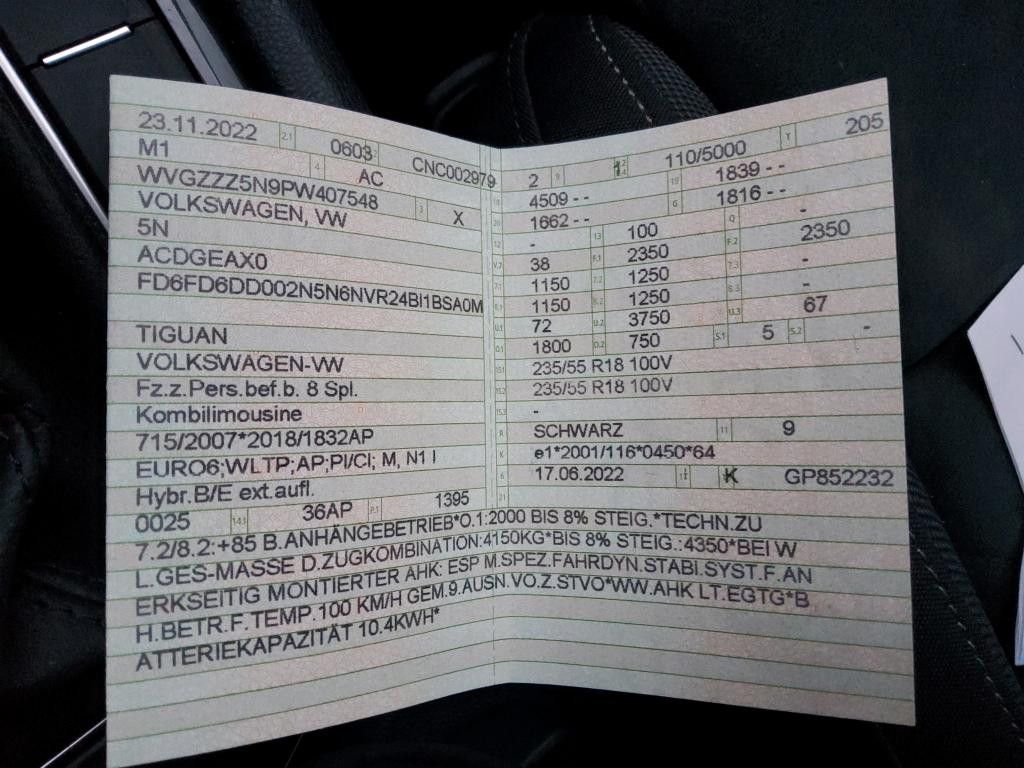 23.11.2022 2.1 0603 CNC002979
M1 4 AC
WVGZZZ5N9PW407548 3 X
VOLKSWAGEN, VW
5N
ACDGEAX0
FD6FD6DD002N5N6NVR24BI1BSA0M
TIGUAN
VOLKSWAGEN-VW
Fz.z.Pers.bef.b. 8 Spl.
Kombilimousine
715/2007*2018/1832AP
EURO6;WLTP;AP;PI/CI; M, N1 I
Hybr.B/E ext.aufl.
0025 14.1 36AP P.1 1395
2 9 110/5000 T 205
18 4509 - - 19 1839 - -
20 1662 - - G 1816 - -
12 - 13 100 Q -
V.7 38 F.1 2350 F.2 2350
7.1 1150 7.2 1250 7.3 -
8.1 1150 8.2 1250 8.3 -
U.1 72 U.2 3750 U.3 67
O.1 1800 O.2 750 S.1 5 S.2 -
15.1 235/55 R18 100V
15.2 235/55 R18 100V
15.3 -
R SCHWARZ 11 9
K e1*2001/116*0450*64
6 17.06.2022 17 K GP852232
21
7.2/8.2:+85 B.ANHÄNGEBETRIEB*O.1:2000 BIS 8% STEIG.*TECHN.ZU
L.GES-MASSE D.ZUGKOMBINATION:4150KG*BIS 8% STEIG.:4350*BEI W
ERKSEITIG MONTIERTER AHK: ESP M.SPEZ.FAHRDYN.STABI.SYST.F.AN
H.BETR.F.TEMP.100 KM/H GEM.9.AUSN.VO.Z.STVO*WW.AHK LT.EGTG*B
ATTERIEKAPAZITÄT 10.4KWH*